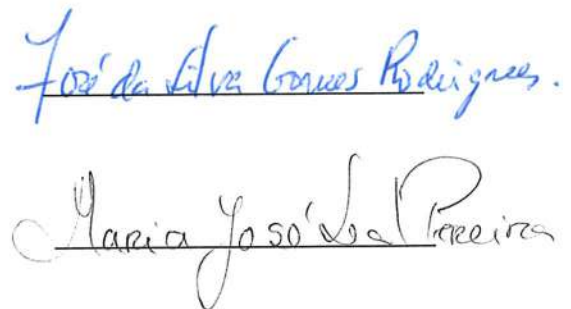 José da Silva Gomes Rodrigues.
Maria José Leal Pereira